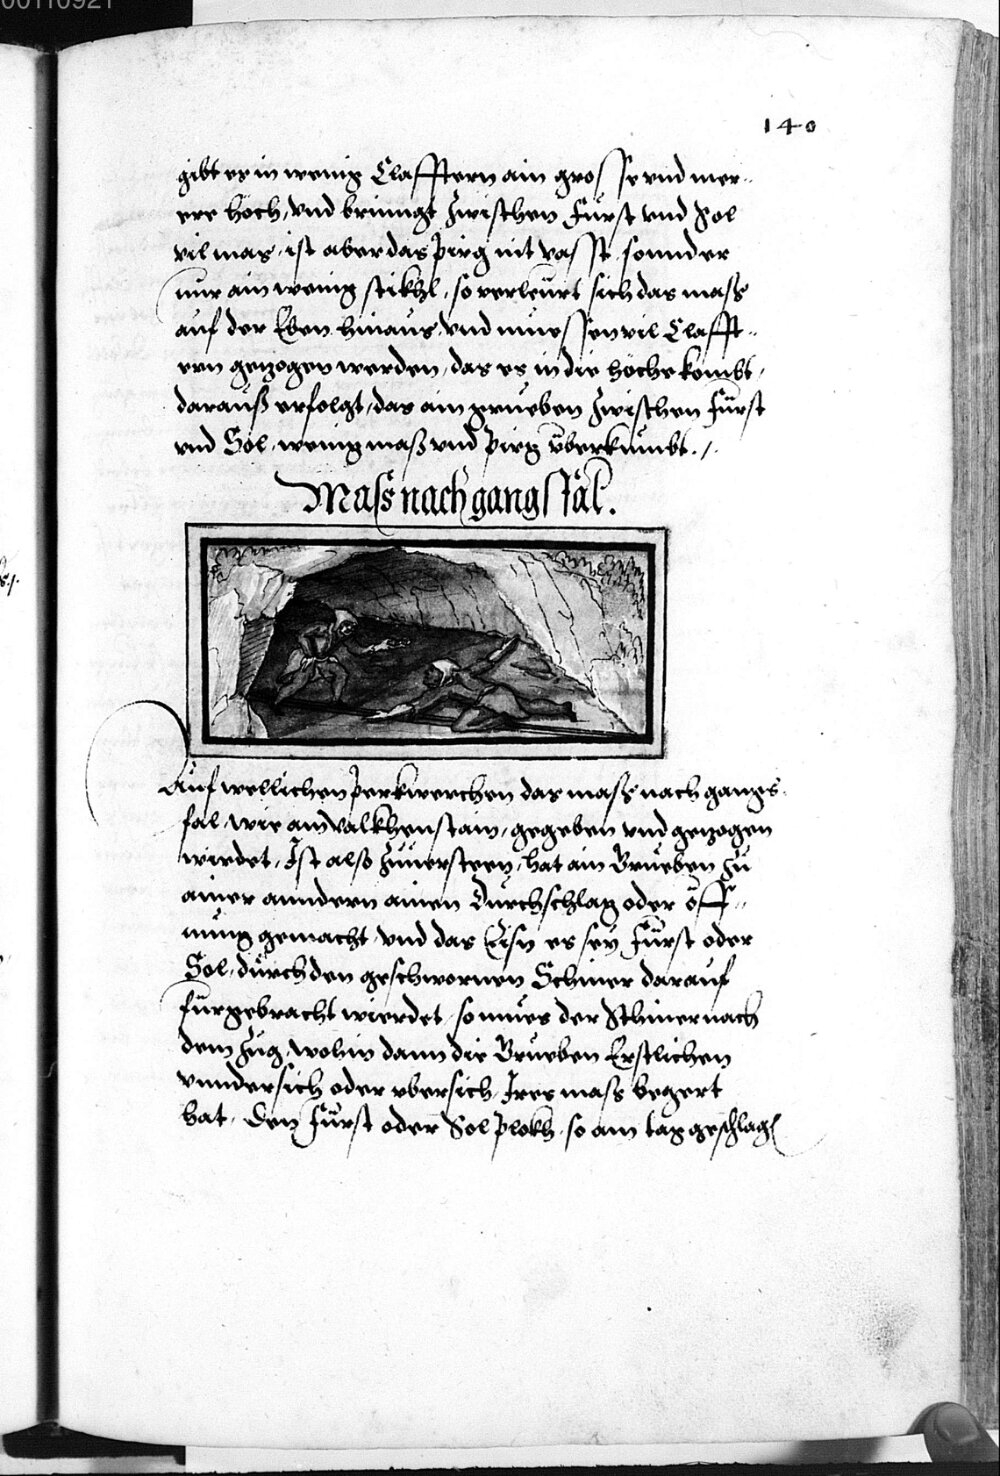 00110921
140
gibt es in wenig Clafftern ain grosse vnd mer-
ere höch, vnd bringt zwischen Fürst vnd Sol
vil mas, ist aber das pirg nit vasst, sonnder
nur ain wenig stikhl, so verleürt sich das mass
auf der Eben hinaus, vnd muessen vil Clafft-
ern gezogen werden, das es in die höche kombt,
darauß erfolgt, das ain grueben zwischen Fürst
vnd Sol, wenig maß vnd pirg überkumbt.
Mass nach gangs fäl.
Auf wellichen Perkwerchen das mass nach gangs
fal, wie am valkhenstain, gegeben vnd gezogen
wirdet, Ist also zuuersteen, hat ain Grueben zu
ainer anndern ainen Durchschlag oder öff-
nung gemacht, vnd das Eisn es sey Fürst oder
Sol, durch den geschwornen Schiner darauf
fürgebracht wierdet, so mues der Schiner nach
dem zug, wohin dann die Grueben Erstlichen
vnndersich oder vbersich, Ires mass begert
hat, den Fürst oder Sol Plokh, so am tag geschlagn